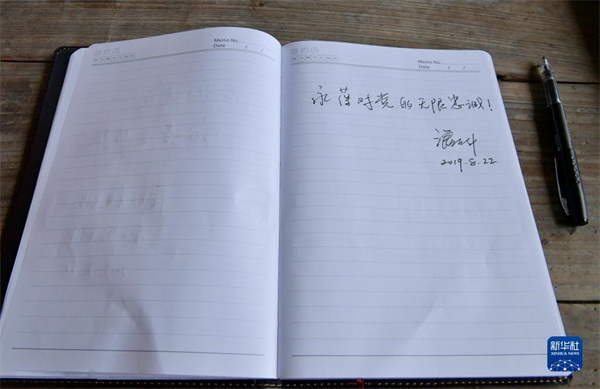 Memo No.
Date / /
Memo No.
Date / /
永葆对党的无限忠诚！
2019.8.22
新华社
XINHUA NEWS